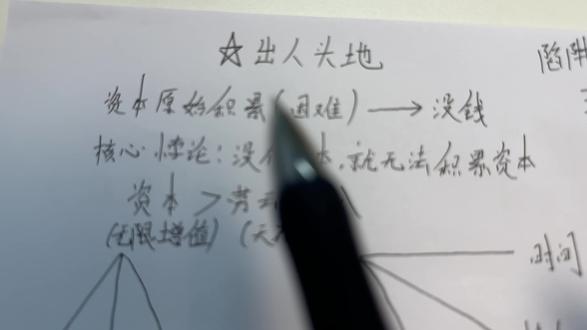 ☆出人头地
陷阱
资本原始积累(困难)→没钱
核心悖论:没 本,就无法积累资本
资本>劳
(无限增值)
时间